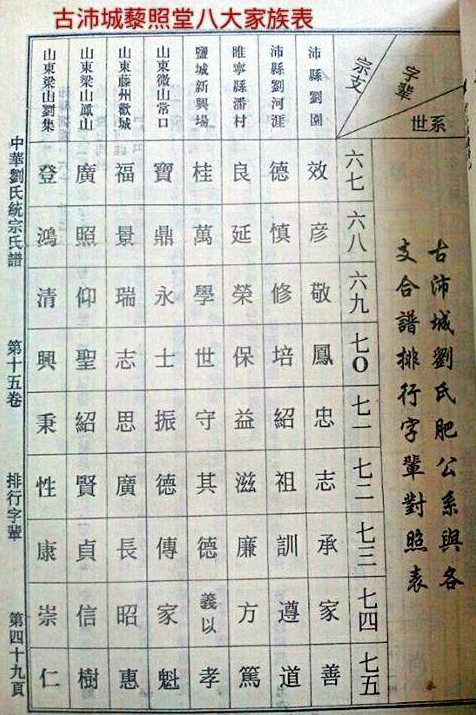 古沛城藜照堂八大家族表
古沛城劉氏肥公系與各
支合譜排行字輩對照表
字輩
宗支
世系
六七 六八 六九 七〇 七一 七二 七三 七四 七五
沛縣劉園 效 彦 敬 鳳 忠 志 承 家 善
沛縣劉河涯 德 慎 修 培 紹 祖 訓 遵 道
睢寧縣潘村 良 延 榮 保 益 滋 廉 方 篤
鹽城新興場 桂 萬 學 世 守 其 德 義以 孝
山東微山常口 寶 鼎 永 士 振 德 傳 家 魁
山東滕州歡城 福 景 瑞 志 思 廣 長 昭 惠
山東梁山鳳山 廣 照 仰 聖 紹 賢 貞 信 樹
山東梁山劉集 登 鴻 清 興 秉 性 康 崇 仁
中華劉氏統宗氏譜 第十五卷 排行字輩 第四十九頁